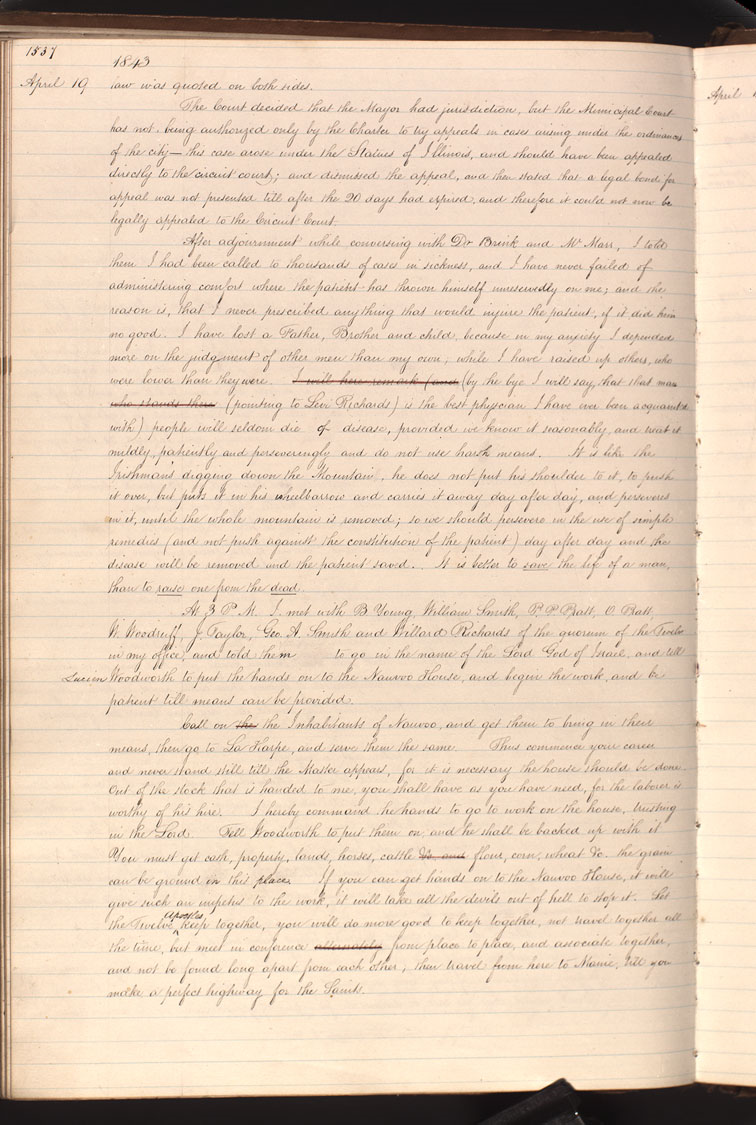 1537
1843
April 19 law was quosed on both sides.
The Court decided that the Mayor had jurisdiction, but the Municipal Court
has not, being authorized only by the Charter to try appeals in cases arising under the ordinances
of the city— this case arose under the Statues of Illinois, and should have been appealed
directly to the circuit court; and dismissed the appeal, and then stated that a legal bond for
appeal was not presented till after the 20 days had expired, and therefore it could not now be
legally appealed to the Circuit Court.
After adjournment while conversing with Dr Brink and Mr Marr, I told
them I had been called to thousands of cases in sickness, and I have never failed of
administering comfort where the patient has thrown himself unreservedly on me; and the
reason is, that I never prescribed anything that would injure the patient, if it did him
no good. I have lost a Father, Brother and child, because in my anxiety I depended
more on the judgment of other men than my own; while I have raised up others, who
were lower than they were. I will here remark (and (by the bye I will say, that that man
who stands there (pointing to Levi Richards) is the best physician I have ever been acquainted
with) people will seldom die of disease, provided we know it seasonably, and treat it
mildly, patiently and perseveringly and do not use harsh means. It is like the
Irishman's digging down the Mountain, he does not put his shoulder to it, to push
it over, but puts it in his wheelbarrow and carries it away day after day, and perseveres
in it, until the whole mountain is removed; so we should persevere in the use of simple
remedies (and not push against the constitution of the patient) day after day and the
disease will be removed and the patient saved. It is better to save the life of a man,
than to raise one from the dead.
At 3 P.M. I met with B Young, William Smith, P. P Pratt, O Pratt,
W. Woodruff, J. Taylor, Geo. A. Smith and Willard Richards of the quorum of the Twelve
in my office, and told them to go in the name of the Lord God of Israel, and tell
Lucien Woodworth to put the hands on to the Nauvoo House, and begin the work, and be
patient till means can be provided.
Call on the the Inhabitants of Nauvoo, and get them to bring in their
means, then go to La Harpe, and serve them the same. Thus commence your career
and never stand still till the Master appears, for it is necessary the house should be done.
Out of the stock that is handed to me, you shall have as you have need, for the labourer is
worthy of his hire. I hereby command the hands to go to work on the house, trusting
in the Lord. Tell Woodworth to put them on, and he shall be backed up with it
You must get cash, property, lands, horses, cattle &c, and flour, corn, wheat &c. the grain
can be ground in this place. If you can get hands on to the Nauvoo House, it will
give such an impetus to the work, it will take all the devils out of hell to stop it. Let
the Twelve Apostles keep together, you will do more good to keep together, not travel together all
the time, but meet in conference alternately from place to place, and associate together,
and not be found long apart from each other; then travel from here to Maine, till you
make a perfect highway for the Saints.
April